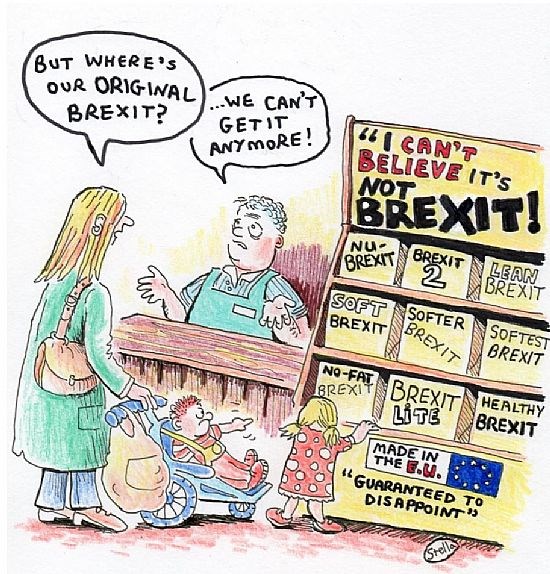 BUT WHERE'S
OUR ORIGINAL
BREXIT?
...WE CAN'T
GET IT
ANYMORE!
"I CAN'T
BELIEVE IT'S
NOT
BREXIT!
NU-
BREXIT
BREXIT
2
LEAN
BREXIT
SOFT
BREXIT
SOFTER
BREXIT
SOFTEST
BREXIT
NO-FAT
BREXIT
BREXIT
LiTE
HEALTHY
BREXIT
MADE IN
THE E.U.
"GUARANTEED TO
DISAPPOINT"
Stella